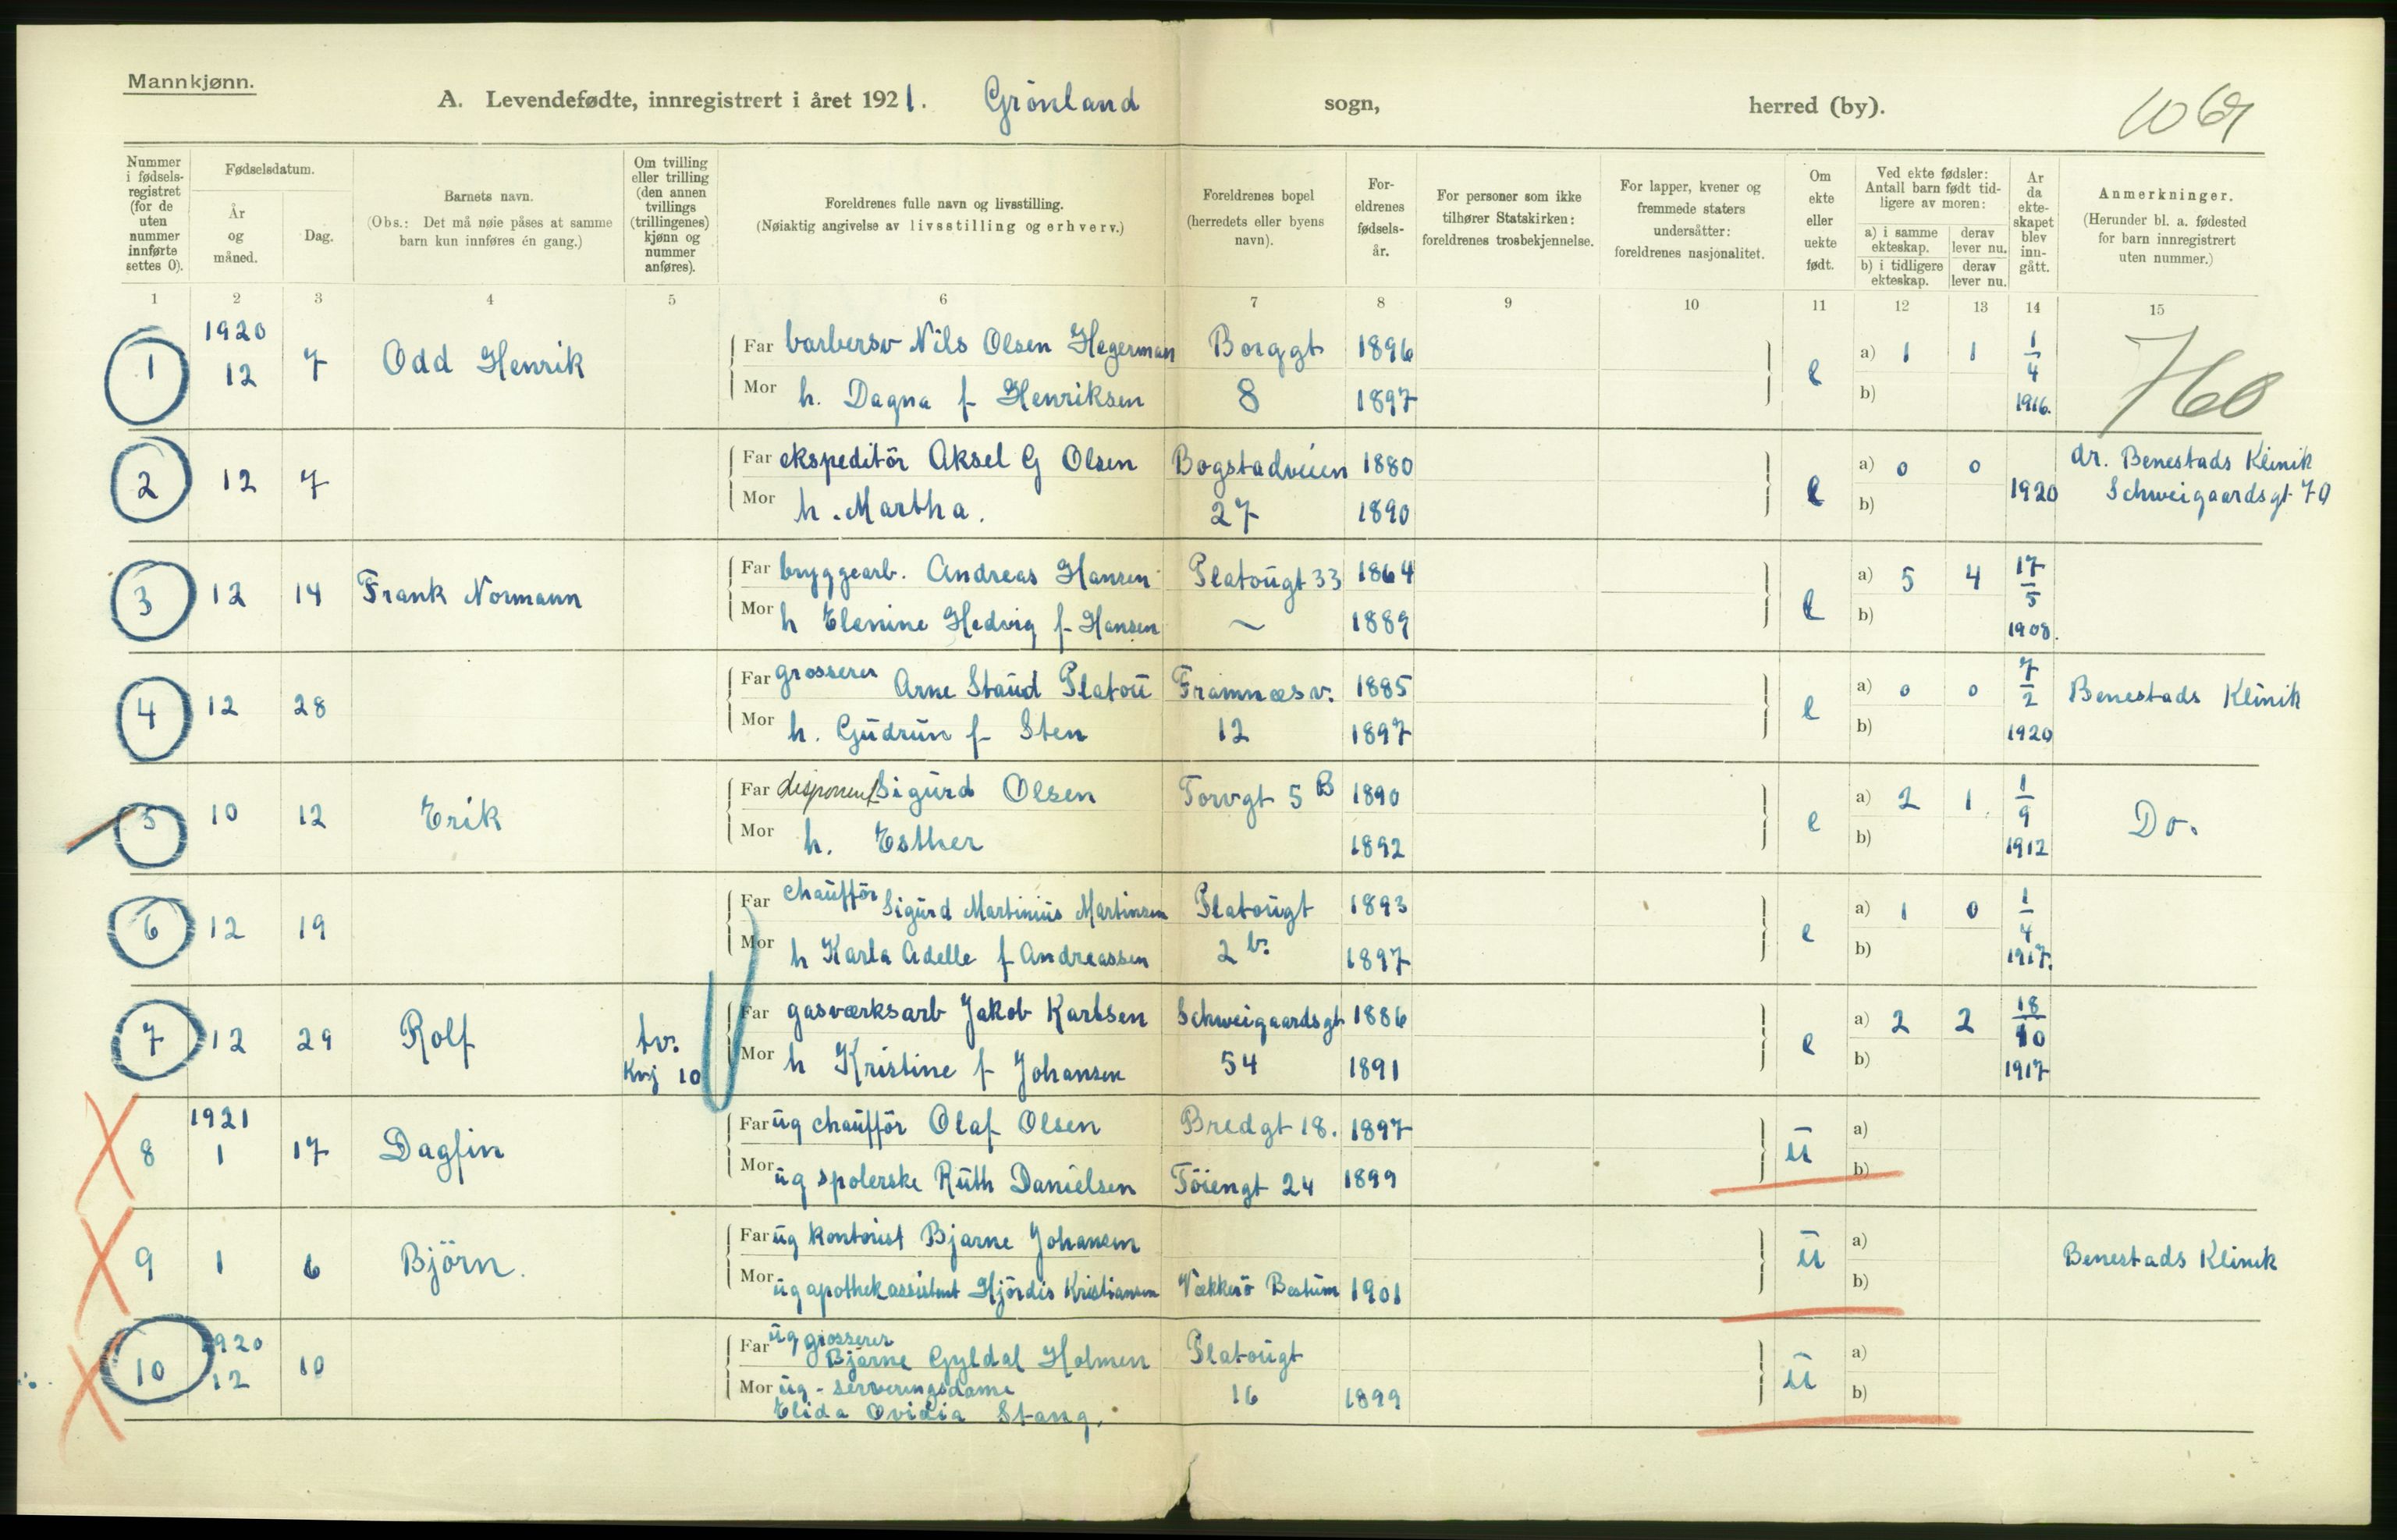 Mannkjønn.
A. Levendefødte, innregistrert i året 1921. Grönland sogn, herred (by).
Nummer i fødsels-registret (for de uten nummer innførte settes 0).
Fødselsdatum.
År og måned.
Dag.
Barnets navn.
(Obs.: Det må nøie påses at samme barn kun innføres én gang.)
Om tvilling eller trilling (den annen tvillings (trillingenes) kjønn og nummer anføres).
Foreldrenes fulle navn og livsstilling.
(Nøiaktig angivelse av livsstilling og erhverv.)
Foreldrenes bopel (herredets eller byens navn).
For-eldrenes fødsels-år.
For personer som ikke tilhører Statskirken: foreldrenes trosbekjennelse.
For lapper, kvener og fremmede staters undersåtter: foreldrenes nasjonalitet.
Om ekte eller uekte født.
Ved ekte fødsler: Antall barn født tid-ligere av moren:
a) i samme ekteskap.
derav lever nu.
b) i tidligere ekteskap.
derav lever nu.
År da ekte-skapet blev inn-gått.
Anmerkninger.
(Herunder bl. a. fødested for barn innregistrert uten nummer.)
1 2 3 4 5 6 7 8 9 10 11 12 13 14 15
1 1920 12 7 Odd Henrik Far barbersv Nils Olsen Hagerman Borggt 1896 e a) 1 1 1/4 1916. 760
Mor h. Dagna f Henriksen 8 1897 b)
2 12 7 Far ekspeditör Aksel G Olsen Bogstadveien 1880 e a) 0 0 1920 dr. Benestads Klinik
Mor h. Martha. 27 1890 b) Schweigaardsgt 70
3 12 14 Frank Normann Far bryggearb. Andreas Hansen Platougt 33 1864 e a) 5 4 17/5 1908.
Mor h Elenine Hedvig f Hansen ~ 1889 b)
4 12 28 Far grosserer Arne Staud Platou Framnæsv. 1885 e a) 0 0 7/2 1920 Benestads Klinik
Mor h. Gudrun f Sten 12 1897 b)
5 10 12 Erik Far disponent Sigurd Olsen Torvgt 5 B 1890 e a) 2 1. 1/9 1912 Do.
Mor h. Esther 1892 b)
6 12 19 Far chaufför Sigurd Martinius Martinsen Platougt 1893 e a) 1 0 1/4 1917.
Mor h Karla Adelle f Andreassen 2 b. 1897 b)
7 12 29 Rolf tv. Kvj 10 Far gasværksarb Jakob Karlsen Schweigaardsgt 1886 e a) 2 2 18/10 1917
Mor h Kristine f Johansen 54 1891 b)
8 1921 1 17 Dagfin Far ug chaufför Olaf Olsen Bredgt 18. 1897 u a)
Mor ug spolerske Ruth Danielsen Töiengt 24 1899 b)
9 1 6 Björn. Far ug kontorist Bjarne Johansen u a) Benestads Klinik
Mor ug apothekassistent Hjördis Kristiansen Vækkerö Bestum 1901 b)
10 1920 12 10 Far ug grosserer Bjarne Gyldal Holmen Platougt u a)
Mor ug - serveringsdame Elida Ovidia Stang. 16 1899 b)